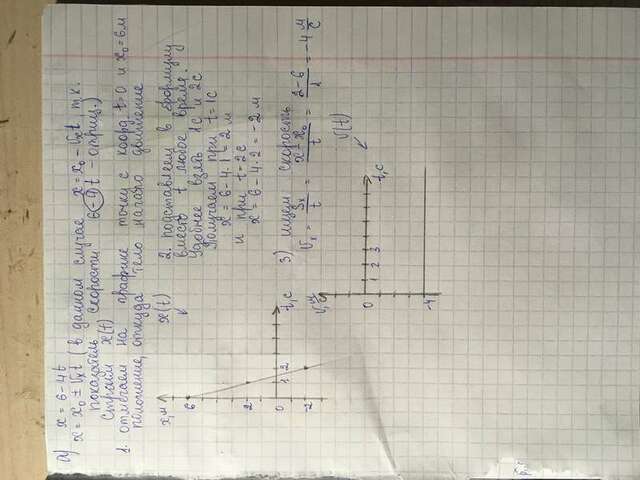 а) x = 6 - 4t
x = x₀ ± Vₓt (в данном случае x = x₀ - Vₓt, т.к.
показатель скорости 6 - 4 t - отриц.)
Строим x(t)
1. отмечаем на графике точку с коорд. t=0 и x₀=6м
положение, откуда тело начало движение
x,м
6
2
0
-2
1 2
t,с
x(t)
2. подставляем в формулу
вместо t любое время.
Удобнее взять 1с и 2с
Получаем при t=1с
x = 6 - 4·1 = 2 м
и при t=2с
x = 6 - 4·2 = -2 м
3) ищем скорость
Vₓ = Sₓ/t = x-x₀/t = 2-6/1 = -4 м/с
V, м/с
0
1 2 3
t,с
-4
V(t)